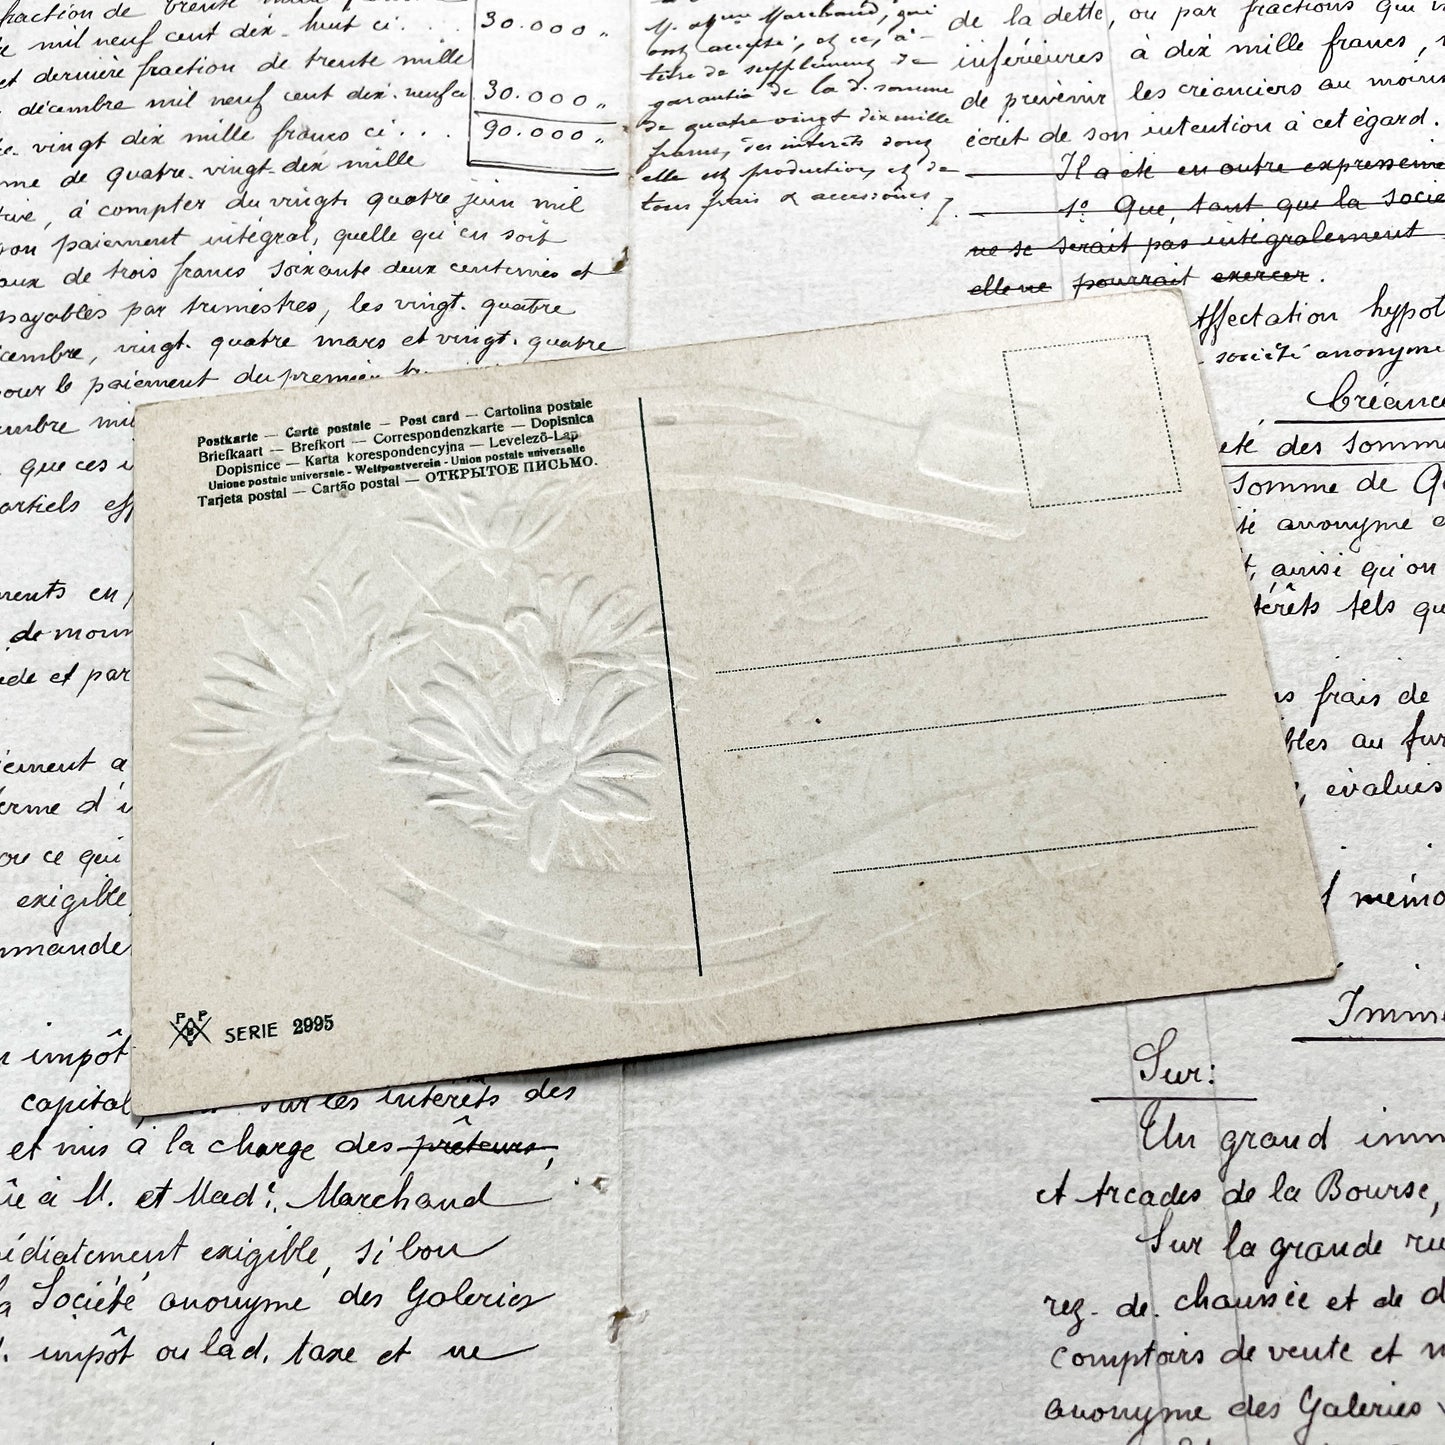 fraction de trente mille
mil neuf cent dix-huit ci . . .
30.000 "
et dernière fraction de trente mille
décembre mil neuf cent dix-neuf ci
30.000 "
vingt dix mille francs ci . . .
90.000 "
me de quatre-vingt-dix mille
à compter du vingt quatre juin mil
paiement intégral, quelle qu'en soit
aux de trois francs soixante deux centimes et
payables par trimestres, les vingt-quatre
cembre, vingt-quatre mars et vingt-quatre
pour le paiement du premier
embre mil
que ces
artiels eff
ments en
de mour
ède et par
iement a
erme d'i
ou ce qui
exigible
mmande
impôt
capital, sur les intérêts des
et mis à la charge des prêteurs,
à M. et Made. Marchand
médiatement exigible, si bon
la Société anonyme des Galeries
impôt ou lad. taxe et ne
M. et Mme Marchand, qui
ont accepté, et ce, à
titre de supplément de
garantie de la d. somme
de quatre vingt dix mille
francs, des intérêts dont
elle est productive, et de
tous frais & accessoires
de la dette, ou par fractions qui
inférieures à dix mille francs,
de prévenir les créanciers au moins
écrit de son intention à cet égard.
Il a été en outre expressém
1º Que, tant que la socié
ne se serait pas intégralement
elle ne pourrait exercer.
Affectation hypot
société anonyme
Créance
été des somme
somme de Q
té anonyme
t, ainsi qu'on
térêts tels qu
frais de
bles au fur
, évalués
mémo
Imme
Sur:
Un grand imm
et Arcades de la Bourse,
Sur la grande ru
rez-de-chaussée et de d
comptoirs de vente et
anonyme des Galeries
Postkarte — Carte postale — Post card — Cartolina postale
Briefkaart — Brefkort — Correspondenzkarte — Dopisnica
Dopisnice — Karta korespondencyjna — Levelezō-Lap
Unione postale universale - Weltpostverein - Union postale universelle
Tarjeta postal — Cartão postal — ОТКРЫТОЕ ПИСЬМО.
SERIE 2995